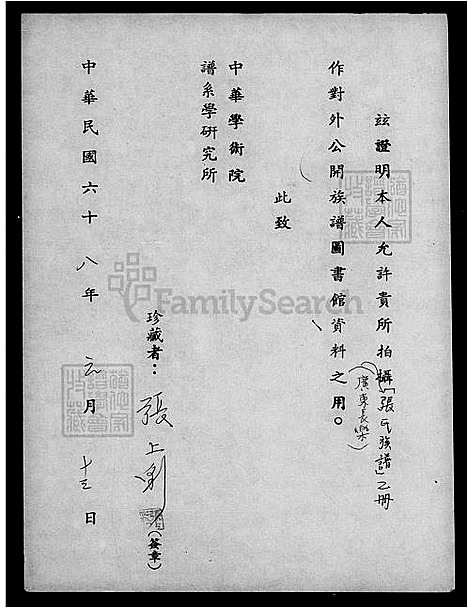 茲證明本人允許貴所拍攝「張氏族譜」乙冊
(廣東長樂)
作對外公開族譜圖書館資料之用。
此致
中華學術院
譜系學研究所
珍藏者：張上
(簽章)
中華民國六十八年元月十三日
FamilySearch